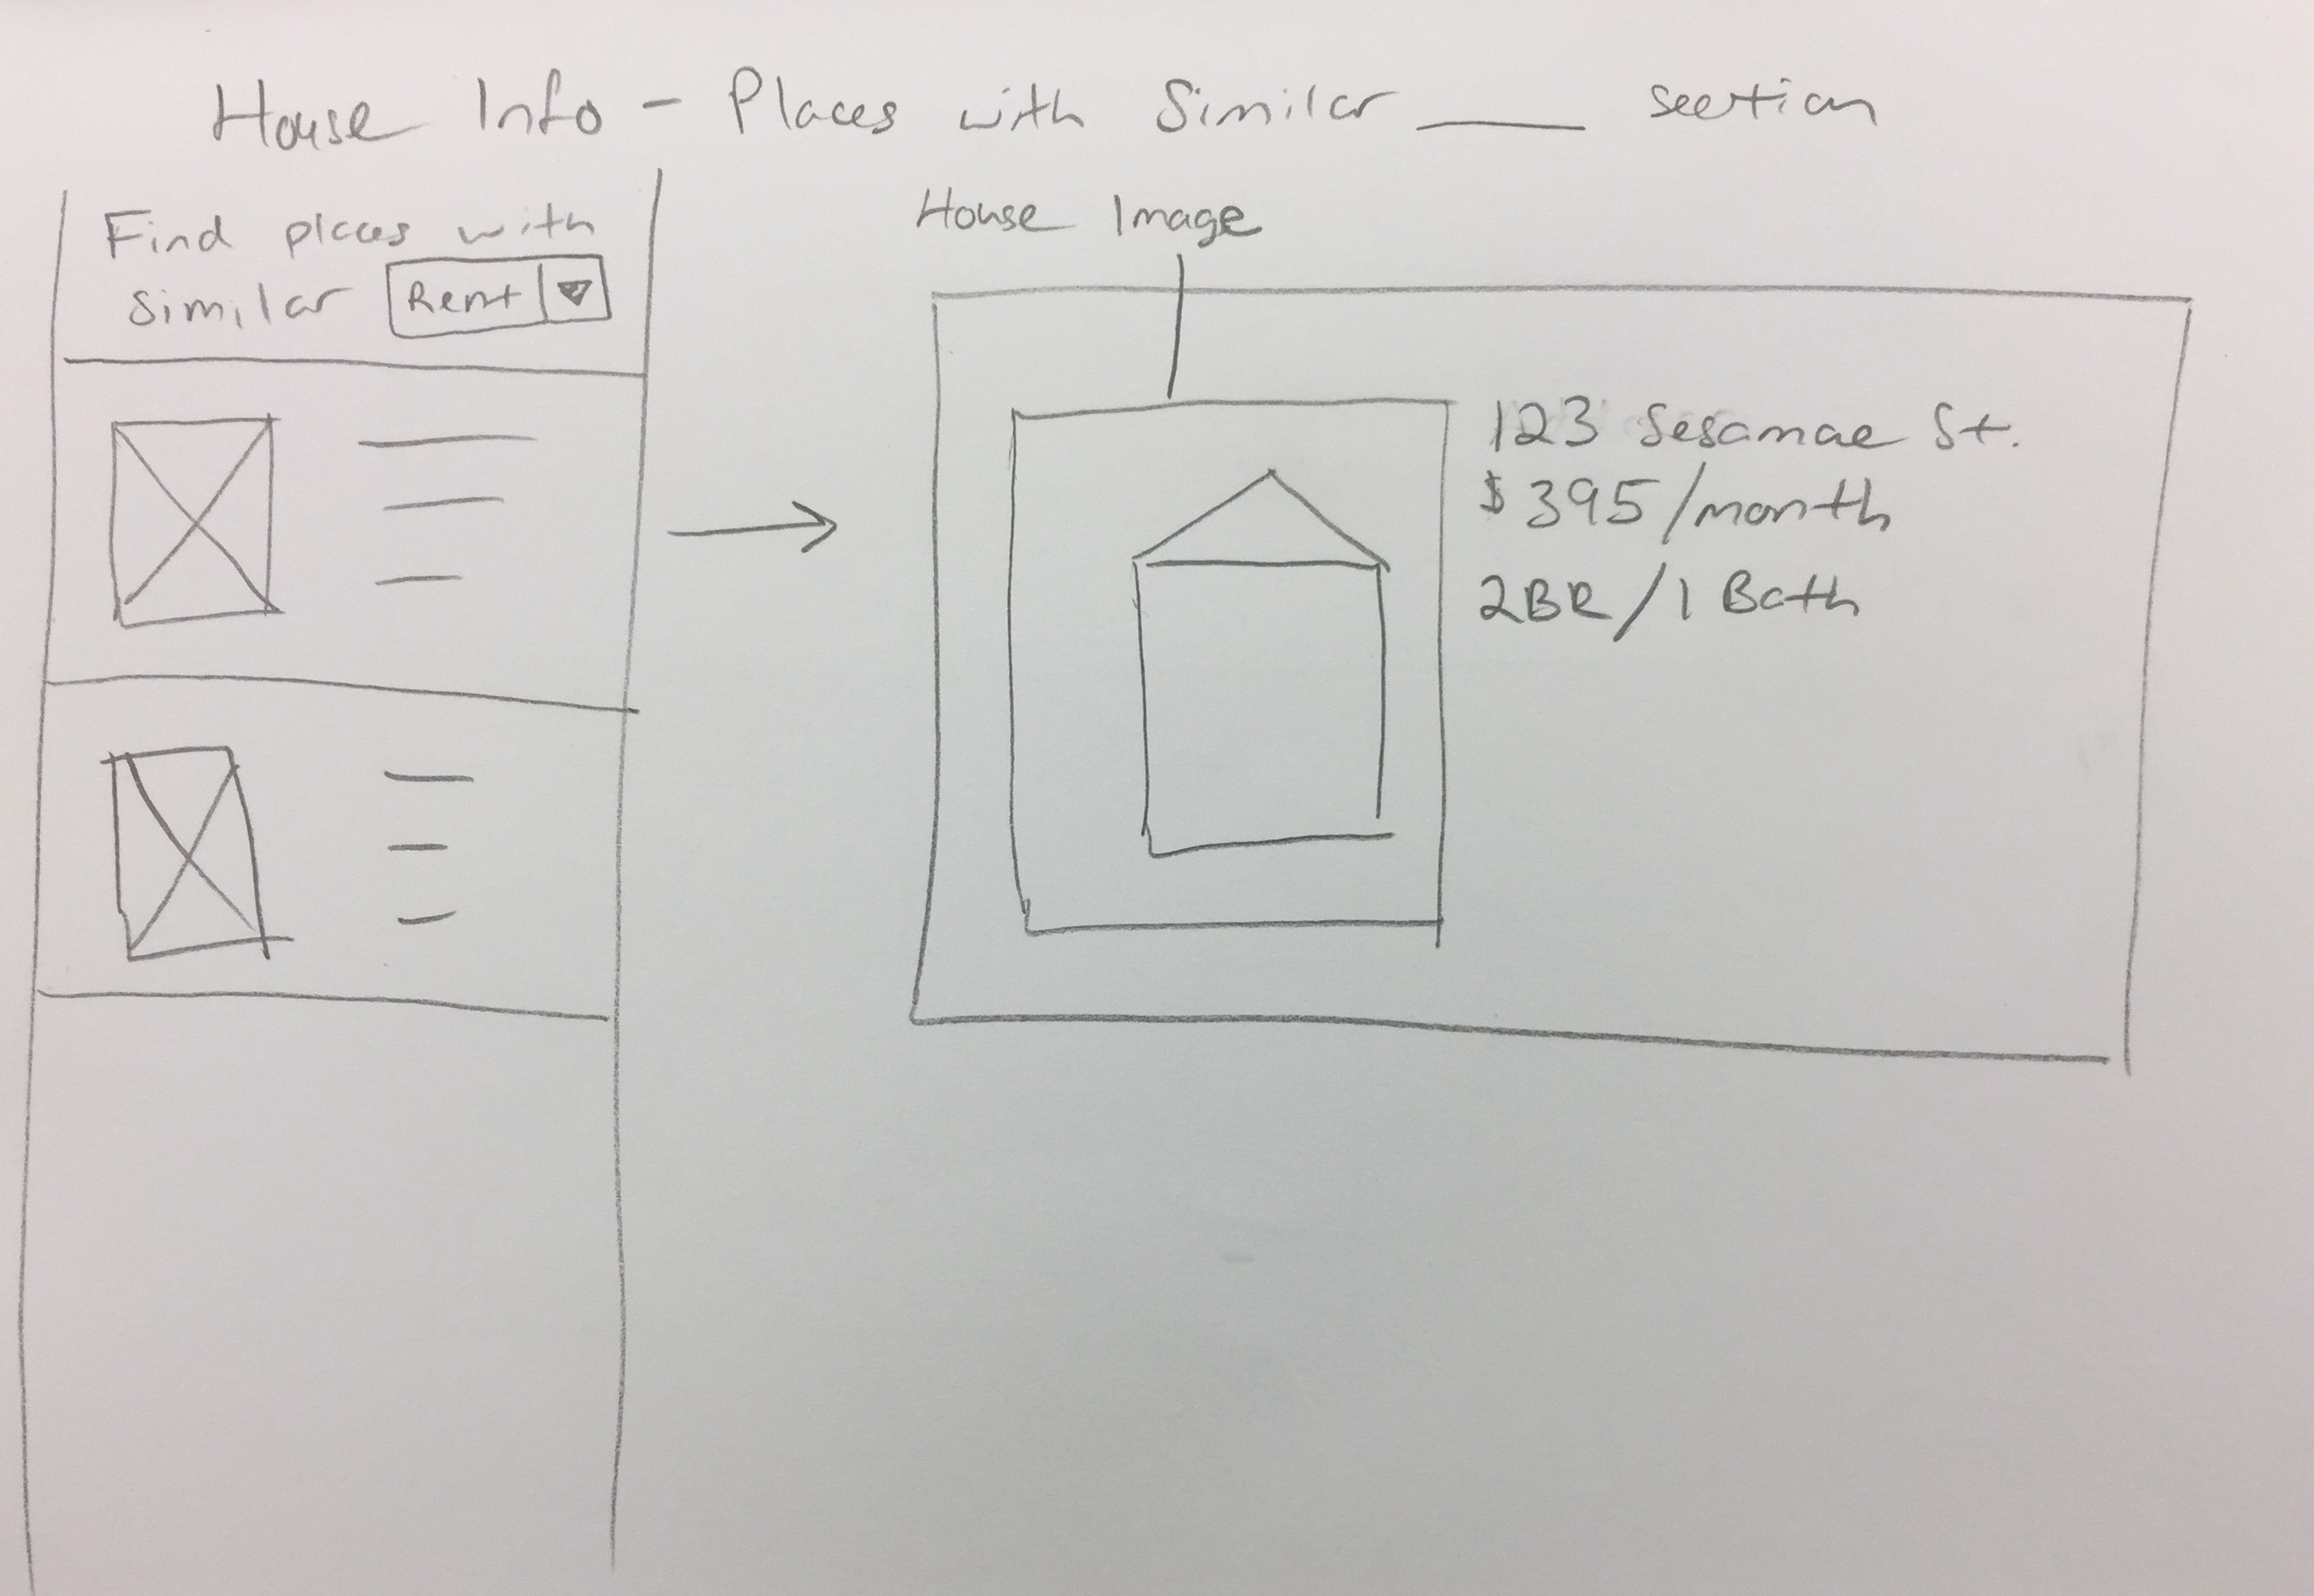 House Info - Places with Similar ____ section
Find places with
similar Rent
House Image
123 Sesamae St.
$395/month
2BR/1 Bath